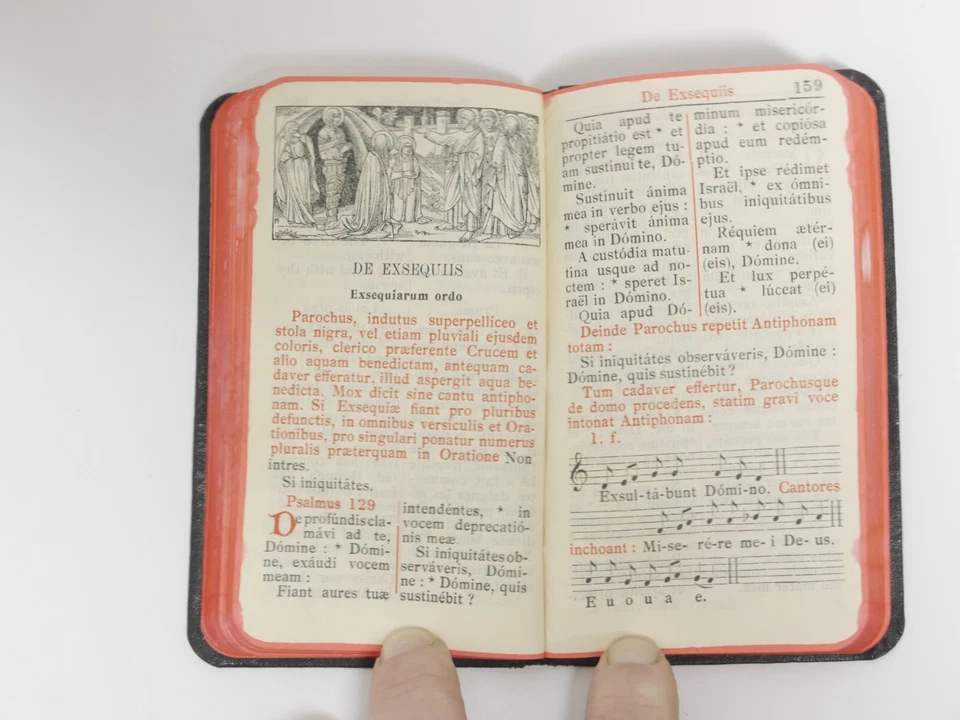 DE EXSEQUIIS
Exsequiarum ordo
Parochus, indutus superpelliceo et
stola nigra, vel etiam pluviali ejusdem
coloris, clerico præferente Crucem et
alio aquam benedictam, antequam ca-
daver efferatur, illud aspergit aqua be-
nedicta. Mox dicit sine cantu antipho-
nam. Si Exsequiæ fiant pro pluribus
defunctis, in omnibus versiculis et Ora-
tionibus, pro singulari ponatur numerus
pluralis præterquam in Oratione Non
intres.
Si iniquitátes.
Psalmus 129
De profúndis cla-
mávi ad te,
Dómine : * Dómi-
ne, exáudi vocem
meam :
Fiant aures tuæ
intendéntes, * in
vocem deprecatió-
nis meæ.
Si iniquitátes ob-
serváveris, Dómi-
ne : * Dómine, quis
sustinébit ?
De Exsequiis 159
Quia apud te
propitiátio est * et
propter legem tu-
am sustínui te, Dó-
mine.
Sustínuit ánima
mea in verbo ejus :
* sperávit ánima
mea in Dómino.
A custódia matu-
tína usque ad no-
ctem : * speret Is-
raël in Dómino.
Quia apud Dó-
minum misericór-
dia : * et copiósa
apud eum redém-
ptio.
Et ipse rédimet
Israël, * ex ómni-
bus iniquitátibus
ejus.
Réquiem ætér-
nam * dona (ei)
(eis), Dómine.
Et lux perpé-
tua * lúceat (ei)
(eis).
Deinde Parochus repetit Antiphonam
totam :
Si iniquitátes observáveris, Dómine :
Dómine, quis sustinébit ?
Tum cadaver effertur, Parochusque
de domo procedens, statim gravi voce
intonat Antiphonam :
1. f.
Exsul-tá-bunt Dómi-no. Cantores
inchoant : Mi-se- ré-re me- i De- us.
E u o u a e.